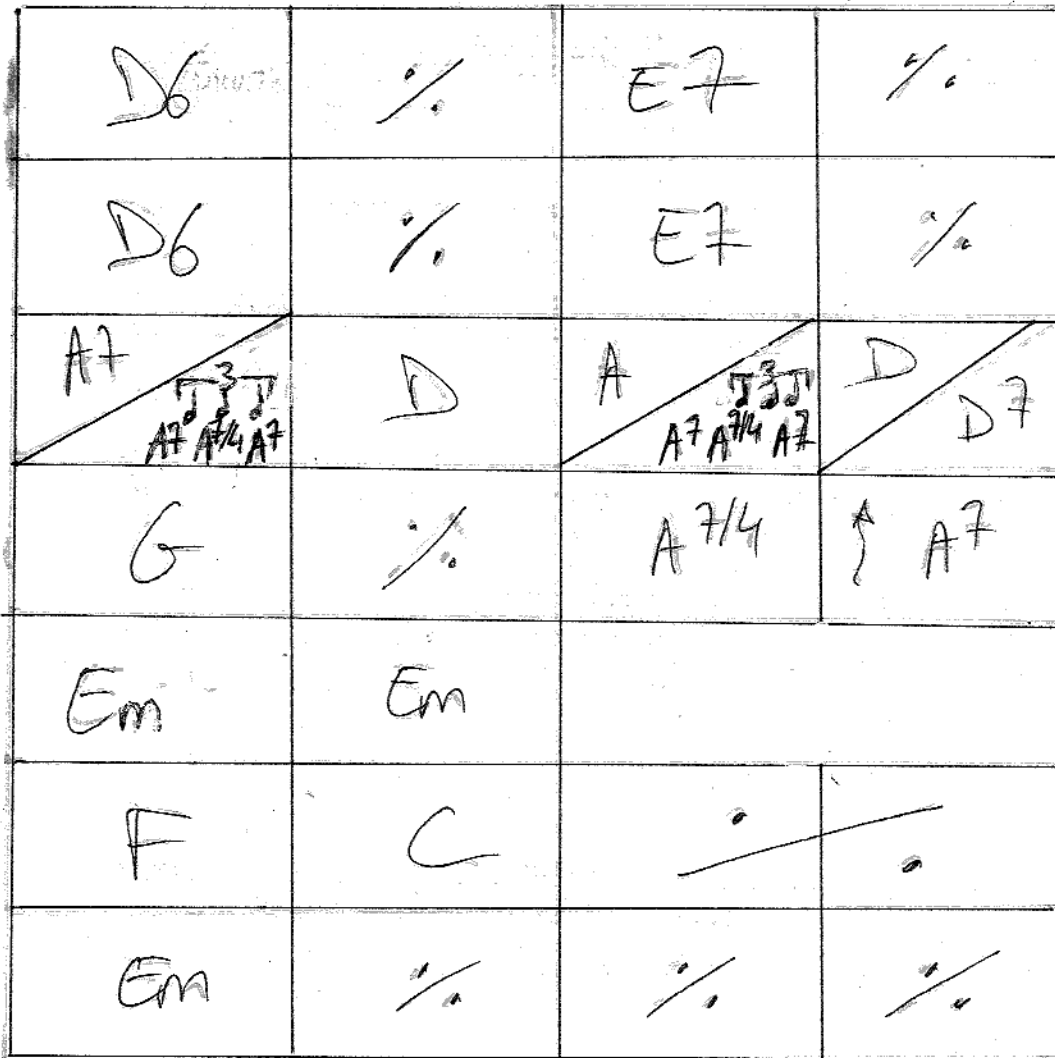 D6 % E7 %
D6 % E7 %
A7 3 A7 A7/4 A7 D A 3 A7 A7/4 A7 D D7
G % A7/4 A7
Em Em
F C %
Em % % %